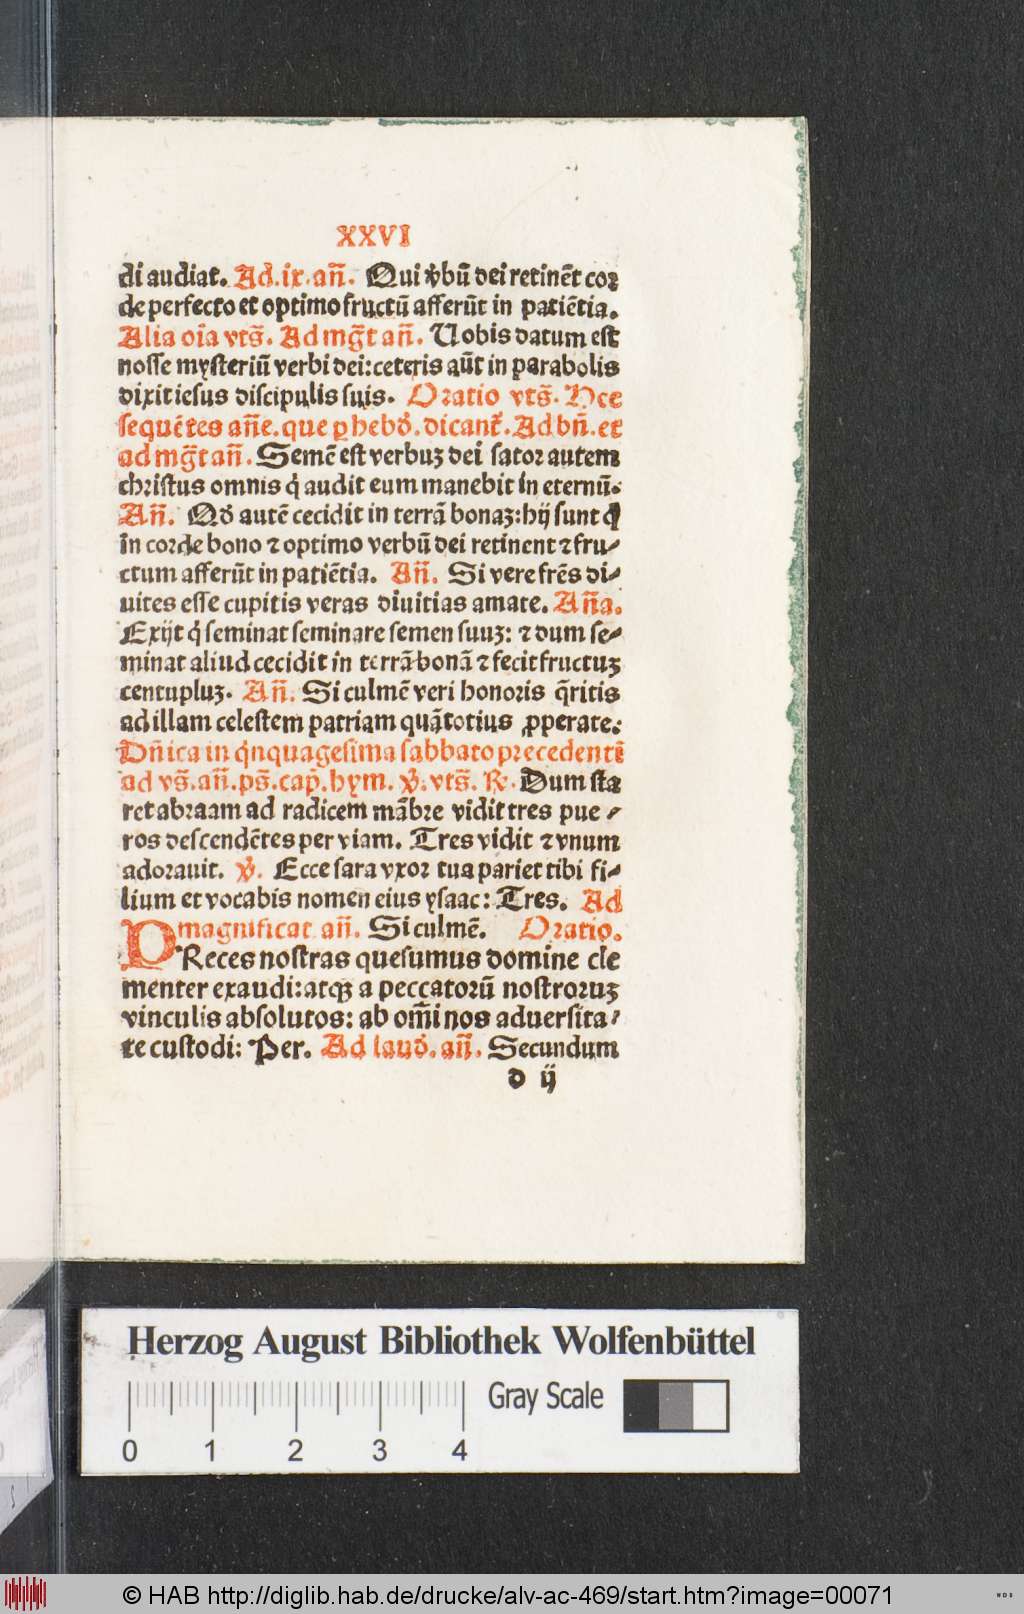 XXVI
di audiat. Ad.ix.añ. Qui v̄bū dei retinēt cor
de perfecto et optimo fructū afferūt in patiētia.
Alia oīa vts̄. Ad mg̃t añ. Uobis datum est
nosse mysteriū verbi dei: ceteris aūt in parabolis
dixit iesus discipulis suis. Oratio vts̄. Hee
sequētes añe. que ꝑ hebd̄. dicant᷑. Ad bñ. et
ad mg̃t añ. Semē est verbuȝ dei sator autem
christus omnis q̇ audit eum manebit in eternū.
Añ. Qd̄ autē cecidit in terrā bonaȝ: hij sunt q̇
in corde bono ⁊ optimo verbū dei retinent ⁊ fru⸗
ctum afferūt in patiētia. Añ. Si vere frēs di⸗
uites esse cupitis veras diuitias amate. Aña.
Exijt q̇ seminat seminare semen suuȝ: ⁊ dum se⸗
minat aliud cecidit in terrā bonā ⁊ fecit fructuȝ
centupluȝ. Añ. Si culmē veri honoris q̄ritis
ad illam celestem patriam quātotius ꝓperate.
Dñica in q̇nquagesima sabbato precedenti
ad vs̄. añ. ps̄. cap̄. hym. ℣. vts̄. ℟. Dum sta
ret abraam ad radicem mābre vidit tres pue⸗
ros descendētes per viam. Tres vidit ⁊ vnum
adorauit. ℣. Ecce sara vxor tua pariet tibi fi⸗
lium et vocabis nomen eius ysaac: Tres. Ad
magnificat añ. Si culmē. Oratio.
PReces nostras quesumus domine cle
menter exaudi: atqȝ a peccatorū nostroruȝ
vinculis absolutos: ab om̄i nos aduersita⸗
te custodi: Per. Ad laud̄. añ. Secundum
d ij
Herzog August Bibliothek Wolfenbüttel
Gray Scale
0 1 2 3 4
© HAB http://diglib.hab.de/drucke/alv-ac-469/start.htm?image=00071